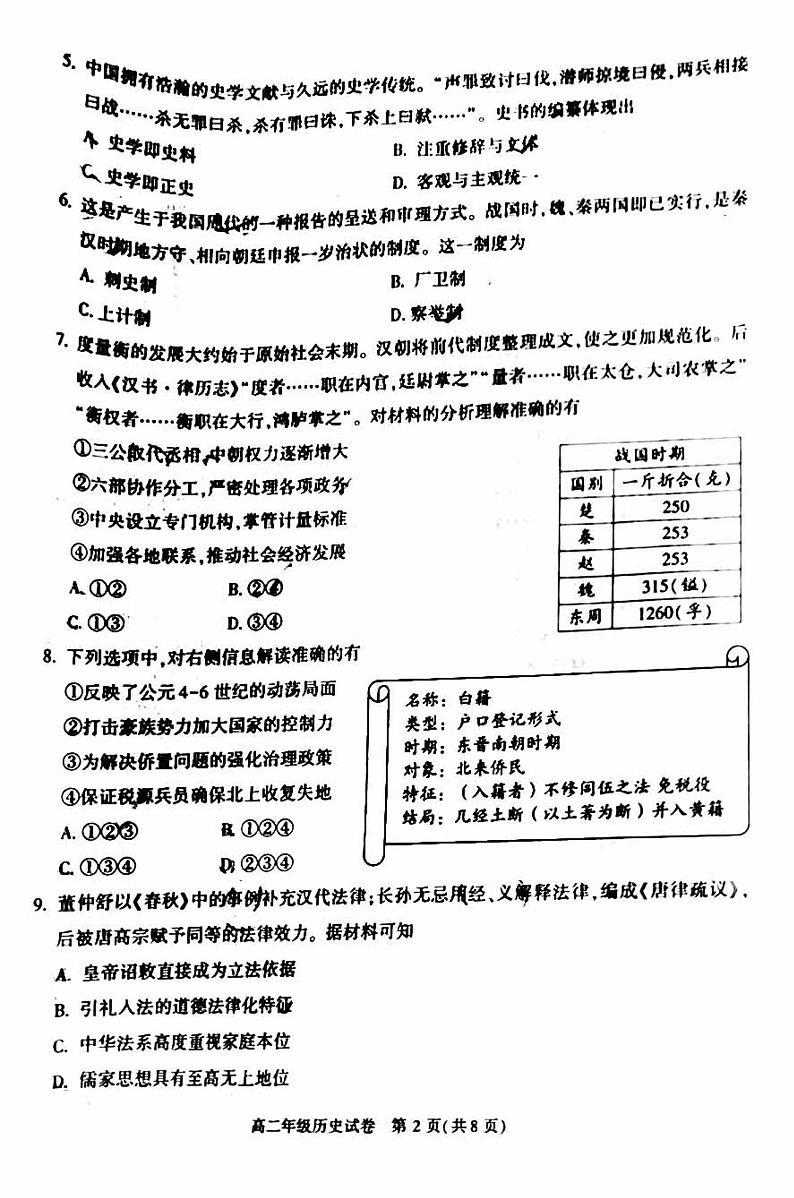 5. 中国拥有浩瀚的史学文献与久远的史学传统。“声罪致讨曰伐,潜师掠境曰侵,两兵相接
曰战……杀无罪曰杀,杀有罪曰诛,下杀上曰弑……”。史书的编纂体现出
A. 史学即史料
B. 注重修辞与文体
C. 史学即正史
D. 客观与主观统一
6. 这是产生于我国周代的一种报告的呈送和审理方式。战国时,魏、秦两国即已实行,是秦
汉时期地方守、相向朝廷申报一岁治状的制度。这一制度为
A. 刺史制
B. 厂卫制
C. 上计制
D. 察举制
7. 度量衡的发展大约始于原始社会末期。汉朝将前代制度整理成文,使之更加规范化。后
收入《汉书·律历志》“度者……职在内官,廷尉掌之”“量者……职在太仓,大司农掌之”
“衡权者……衡职在大行,鸿胪掌之”。对材料的分析理解准确的有
①三公取代丞相,中朝权力逐渐增大
②六部协作分工,严密处理各项政务
③中央设立专门机构,掌管计量标准
④加强各地联系,推动社会经济发展
A. ①②
B. ②④
C. ①③
D. ③④
战国时期
国别 一斤折合(克)
楚 250
秦 253
赵 253
魏 315(镒)
东周 1260(孚)
8. 下列选项中,对右侧信息解读准确的有
①反映了公元4-6世纪的动荡局面
②打击豪族势力加大国家的控制力
③为解决侨置问题的强化治理政策
④保证税源兵员确保北上收复失地
A. ①②③
B. ①②④
C. ①③④
D. ②③④
名称：白籍
类型：户口登记形式
时期：东晋南朝时期
对象：北来侨民
特征：（入籍者）不修闾伍之法 免税役
结局：几经土断（以土著为断）并入黄籍
9. 董仲舒以《春秋》中的事例补充汉代法律;长孙无忌用经、义解释法律,编成《唐律疏议》,
后被唐高宗赋予同等的法律效力。据材料可知
A. 皇帝诏敕直接成为立法依据
B. 引礼入法的道德法律化特征
C. 中华法系高度重视家庭本位
D. 儒家思想具有至高无上地位
高二年级历史试卷 第2页(共8页)